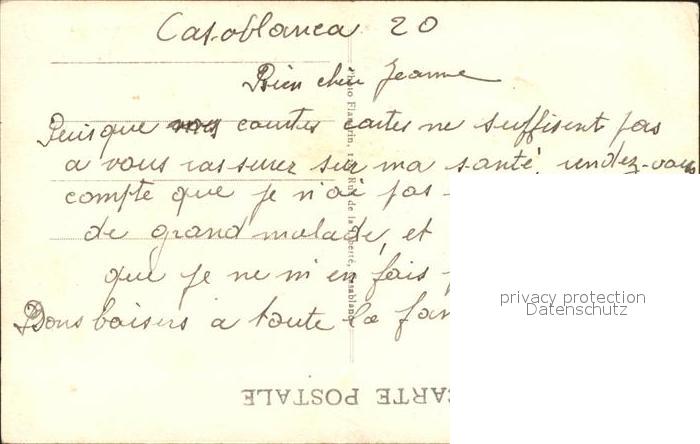 Casablanca 20
Bien chèr Jeanne
Puisque mes courtes cartes ne suffisent pas
a vous rassurez sur ma santé, rendez-vous
compte que je n'ai pas
de grand malade, et
que je ne m'en fais
Bons baisers a toute la fam
privacy protection
Datenschutz
Photo Flandrin, Rue de la Liberté, Casablanca
CARTE POSTALE